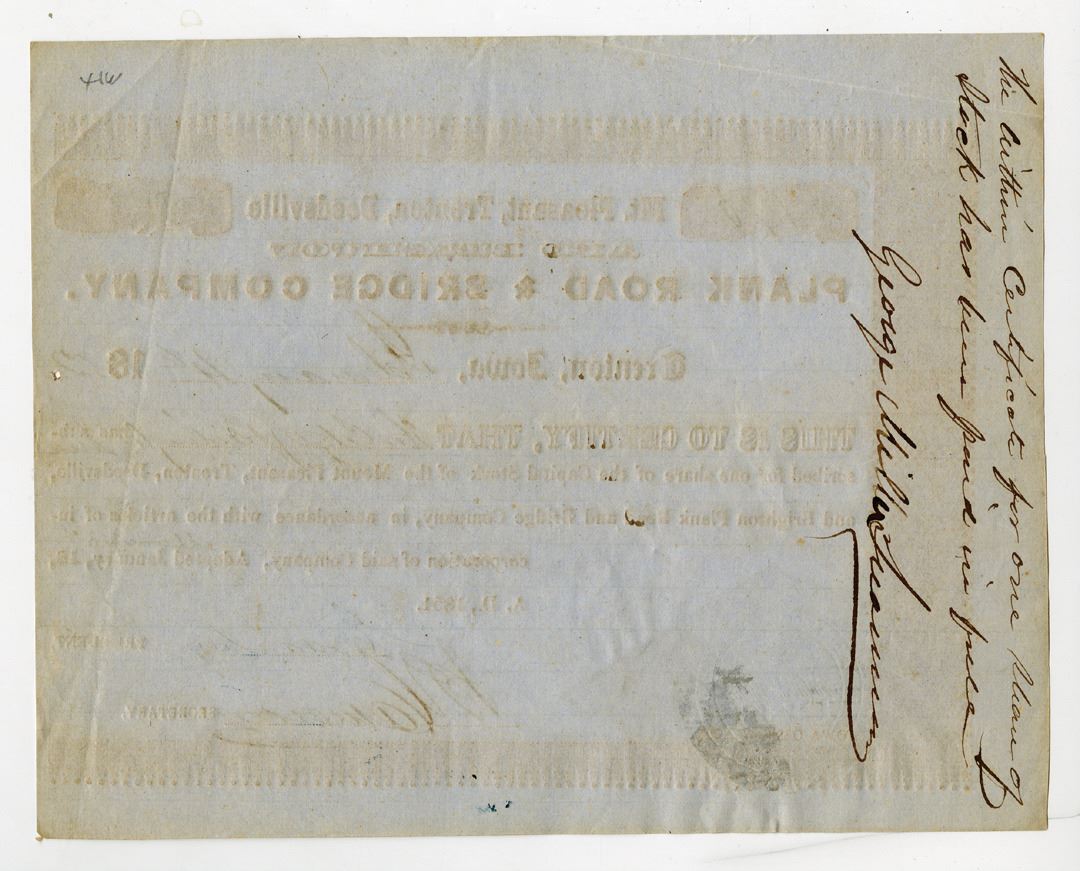 The within Certificate for one share of
Stock has been paid in full
George Miller Treasurer
Mt. Pleasant, Trenton, Deedsville
AND BRIGHTON
PLANK ROAD & BRIDGE COMPANY.
Trenton, Iowa, 18
THIS IS TO CERTIFY, THAT has sub-
scribed for one share of the Capital Stock of the Mount Pleasant, Trenton, Deedsville,
and Brighton Plank Road and Bridge Company, in accordance with the articles of in-
corporation of said Company, Adopted January, 18,
A. D., 1851.
PRESIDENT.
SECRETARY.